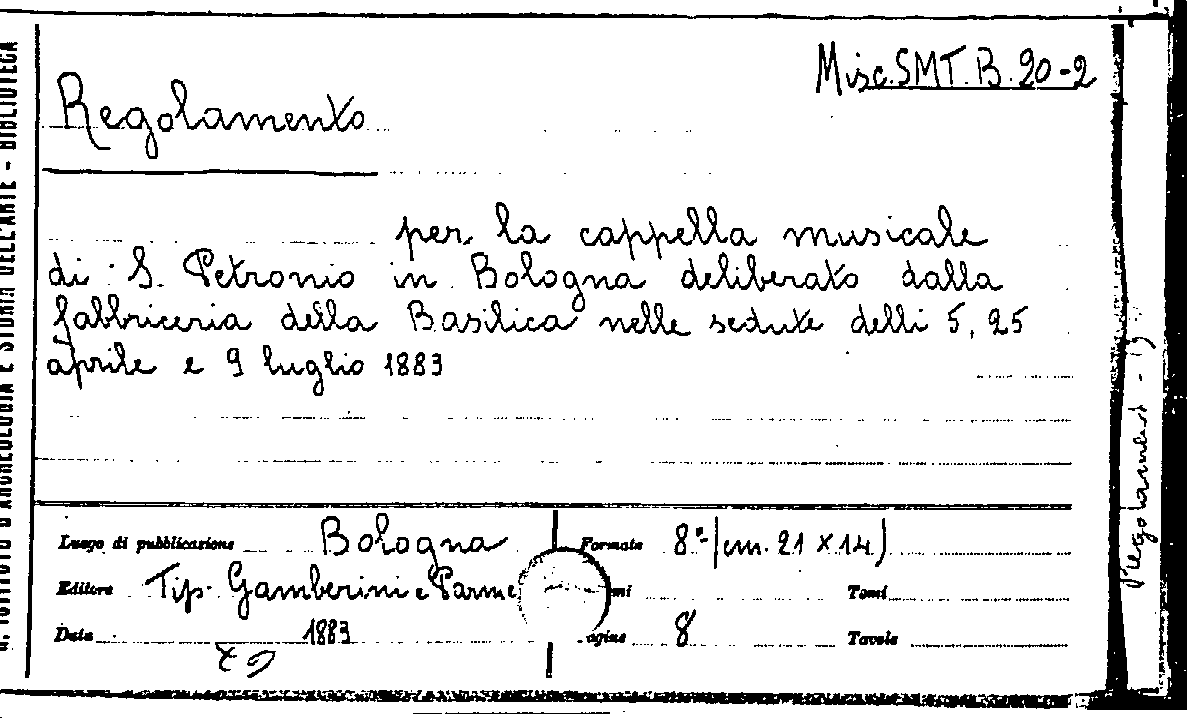 Misc. SMT. B. 20-2
Regolamento
per la cappella musicale
di S. Petronio in Bologna deliberato dalla
fabbriceria della Basilica nelle sedute delli 5, 25
aprile e 9 luglio 1883
Luogo di pubblicazione Bologna Formato 8º (cm. 21 X 14)
Editore Tip. Gamberini e Parme mi Tomi
Data 1883 agine 8 Tavole
ISTITUTO D'ARCHEOLOGIA E STORIA DELL'ARTE - BIBLIOTECA